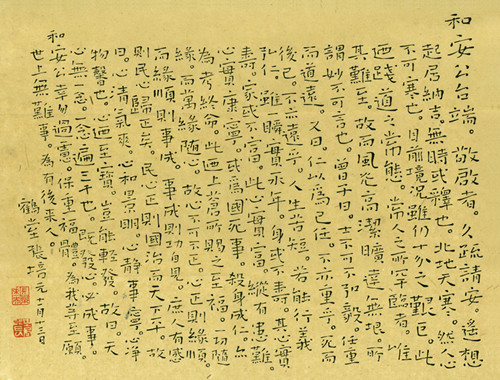 和安公台端。敬啟者。久疏請安遙想
起居納吉無時或釋也。北地天寒。然人心
不可寒也。目前境況雖仍十分之艱巨。此
迺踐道之常態。常人之所罕臨者。唯
其難至。故而風光高潔曠達無垠。所
謂妙不可言也。曾子曰。士不可不弘毅。任重
而道遠。又曰。仁以為己任。不亦重乎。死而
後已。不亦遠乎。人生苦短。若能行義
弘仁。雖一瞬實永年。身或不壽。其心實
壽。家或不富。此心實富。縱有患難。
心實康寧。或為國死事。殺身成仁。亦
為考終命。此迺上蒼所賜之至福。一切隨
緣。而萬緣隨心。故心不可不正。心正則緣順。
而緣順則事成。事成則功自見。庶人有感
則民心歸正矣。民心正則國治而天下平。故
曰。心清氣爽。心和景明。心靜事寧。心淨
物馨也。心迺至寶。豈能輕發。故曰。天
心無一念。一念遍三千也。既發心必成事。
和安公幸勿過慮。保重福體。為我等至願。
世上無難事。為有後來人。
鶴堂張元月三日